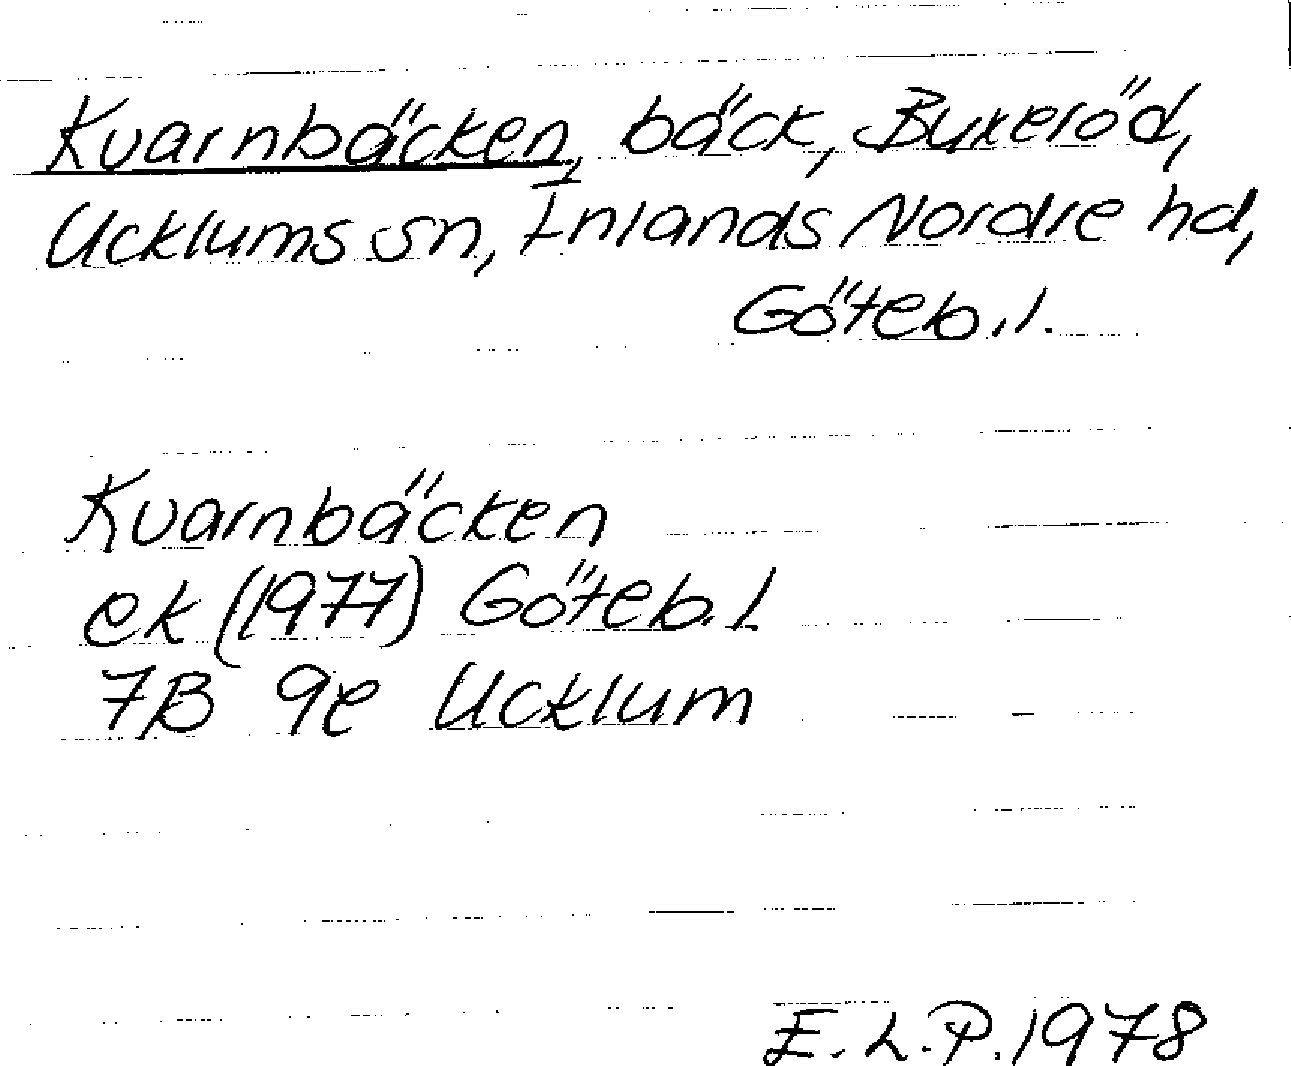 Kvarnbäcken, bäck, Buxeröd,
Ucklums sn, Inlands Nordre hd,
Göteb. l.
Kvarnbäcken
ek (1977) Göteb. l.
7B 9e Ucklum
E. L. P. 1978